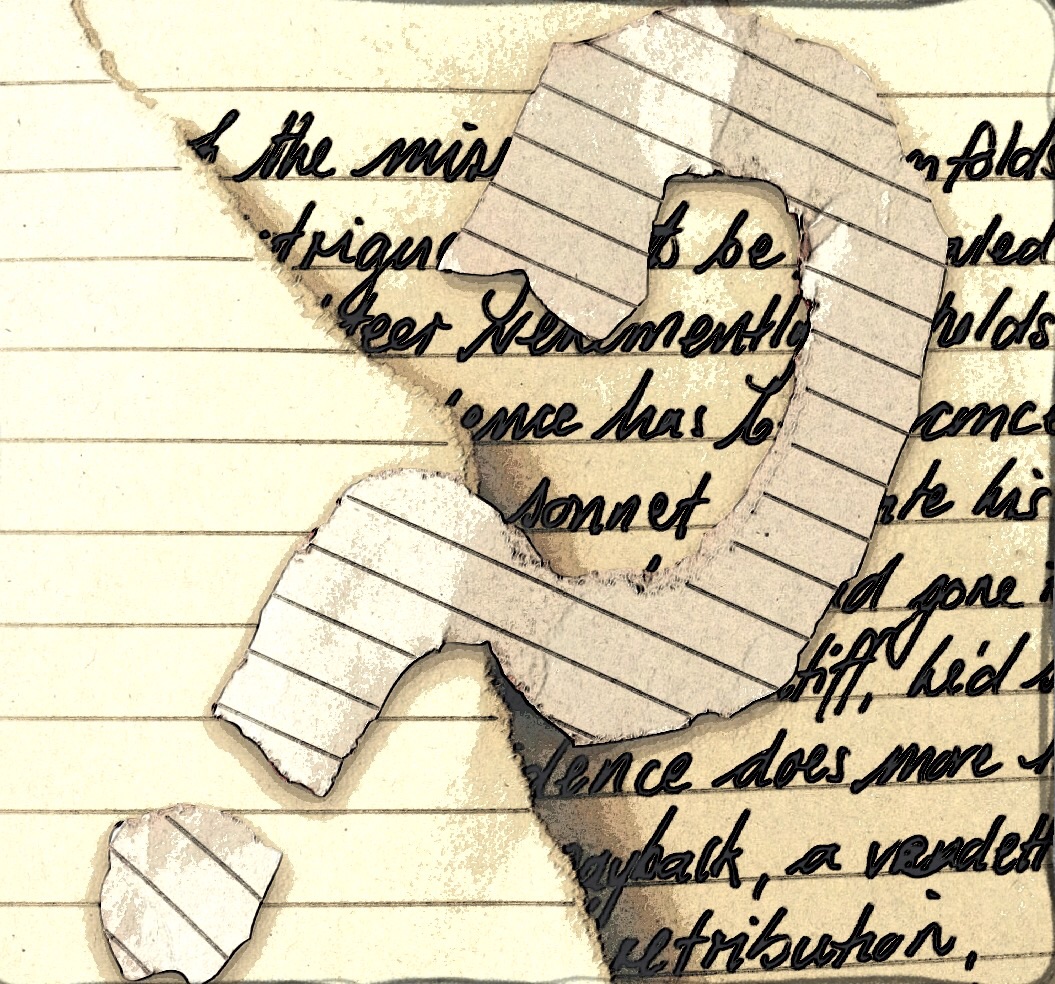 the mis nfolds
trigu t to be ated
teer Vehemently holds
ence has b conce
sonnet ate his
d gone
tiff, he'd
dence does more
ayback, a vendett
retribution,